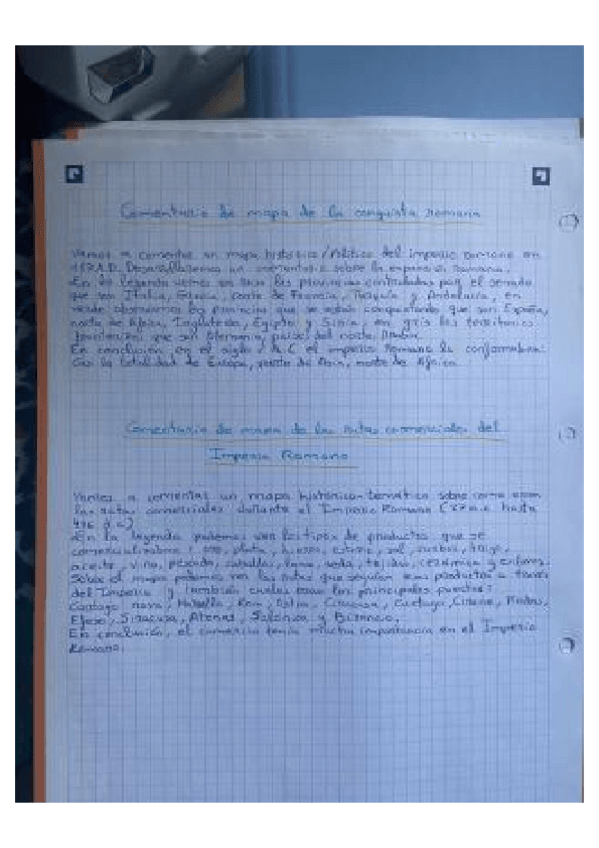 Comentario de mapa de la conquista romana
Vamos a comentar un mapa histórico/Político del imperio romano en
117 A.D. Desarrollaremos un comentario sobre la expansión romana.
En la leyenda vemos en rosa las provincias controladas por el senado
que son Italia, Grecia, parte de Francia, Turquía y Andalucía, en
verde observamos las provincias que se están conquistando que son España,
norte de África, Inglaterra, Egipto y Siria, en gris los territorios
que son Alemania, países del norte
En conclusión en el siglo I A.C el imperio Romano lo conformaban
casi la totalidad de Europa, parte de Asia, norte de África.
Comentario de mapa de las rutas comerciales del
Imperio Romano
Vamos a comentar un mapa histórico-temático sobre como eran
las rutas comerciales durante el Imperio Romano (27 a.c hasta
476 d.c)
En la leyenda podemos ver los tipos de productos que se
comercializaban: oro, plata, hierro, estaño, sal, trigo,
aceite, vino, pescado, caballos, lana, seda, tejidos, cerámica y
Sobre el mapa podemos ver las rutas que seguían esos productos a través
del Imperio y también cuales eran los principales puertos:
Cartago nova, Massalia, Rom, Ostia, Cartago, Cirene, Rodas,
Efeso, Siracusa, Atenas, Salónica y Bizancio.
En conclusión, el comercio tenía mucha importancia en el Imperio
Romano.